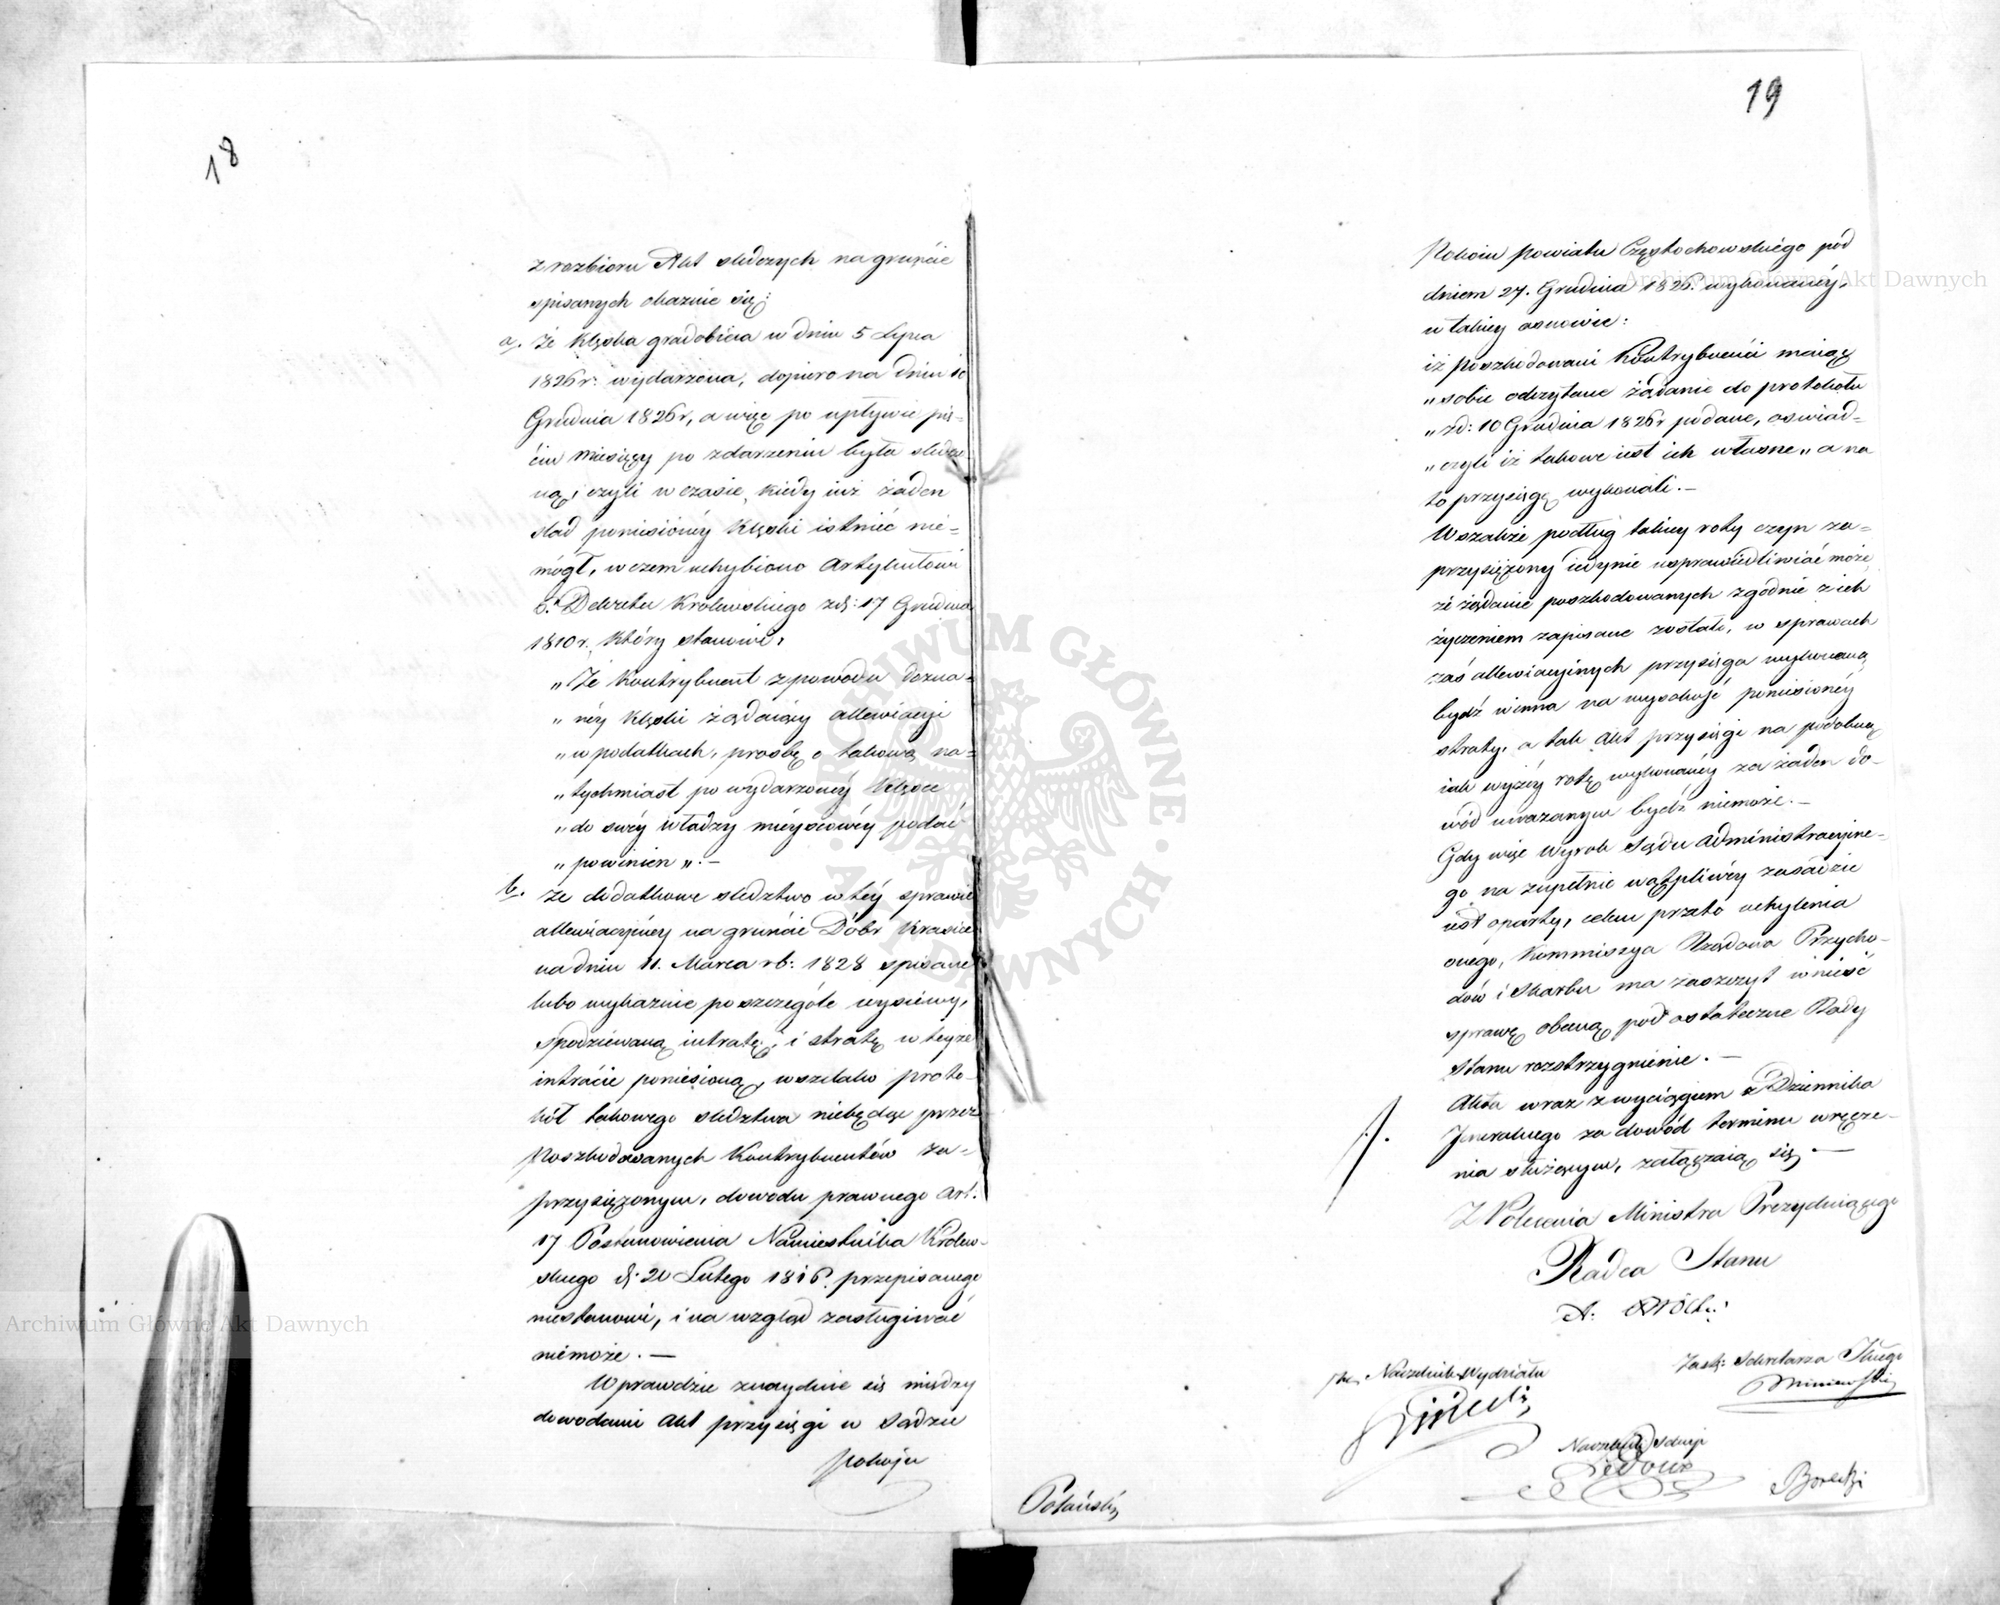 18
z rozbioru Akt śledczych na gruncie
spisanych okazuie się:
a. że klęska gradobicia w dniu 5 Lipca
1826 r. wydarzona, dopiero na dniu 10
Grudnia 1826 r, a więc po upływie pię-
ciu miesięcy po zdarzeniu była śledzo
ną, czyli w czasie, kiedy iuż żaden
ślad poniesionéy klęski istnieć nie-
mógł, w czem uchybiono Artykułowi
6. Dekretu Królewskiego z d: 17 Grudnia
1810 r. który stanowi,
„Że kontrybuent z powodu dozna-
„néy klęski żądaiący allewiacyi
„w podatkach, prośbę o takową na-
„tychmiast po wydarzonéy klęsce
„do swéy władzy mieyscowéy podać
„powinien”. —
b. że dodatkowe śledztwo w téy sprawie
allewiacyinéy na gruncie Dóbr
na dniu 11. Marca rb: 1828 spisane
lubo wykazuie poszczególe wysiewy,
spodziewaną intratę, i stratę w teyże
intracie poniesioną, wszelako proto-
kół takowego śledztwa niebędąc przez
Poszkodowanych Kontrybuentów za-
przysiężonym, dowodu prawnego art.
17 Postanowienia Namiestnika Królew-
skiego d. 20 Lutego 1816. przepisanego
niestanowi, i na wzgląd zasługiwać
niemoże. —
Wprawdzie znayduie się między
dowodami Akt przysięgi w Sądzie
Pokoju
19
Pokoiu Powiatu Częstochowskiego pod
dniem 27. Grudnia 1826. wykonanéy,
w takiey osnowie:
iż Poszkodowani Kontrybuenci maiąc
„sobie odczytane żądanie do protokołu
„z d: 10 Grudnia 1826 r podane, oświad-
„czyli iż takowe iest ich własne„ a na
to przysięgę wykonali. —
Wszakże podług takiey roty czyn za-
przysiężony iedynie usprawiedliwiać może,
że żądanie poszkodowanych zgodnie z ich
życzeniem zapisane zostało, w sprawach
zaś allewiacyinych przysięga wykonaną
bydź winna na wysokość poniesionéy
straty, a tak Akt przysięgi na podobną
iak wyżéy rotę wykonanéy za żaden do-
wód uważanym bydź niemoże. —
Gdy więc Wyrok Sądu Administracyine-
go na zupełnie wątpliwéy zasadzie
iest oparty, celem przeto uchylenia
onego, Kommissya Rządowa Przycho-
dów i Skarbu ma zaszczyt wnieść
sprawę obecną pod ostateczne Rady
Stanu rozstrzygnienie. —
Akta wraz z wyciągiem z Dziennika
Jeneralnego za dowód terminu wręcze-
nia służącym, załączaią się. —
Z Polecenia Ministra Prezyduiącego
Radca Stanu
Naczelnik Wydziału
Zastę: Sekretarza Jlnego
Naczelnik Sekcyi